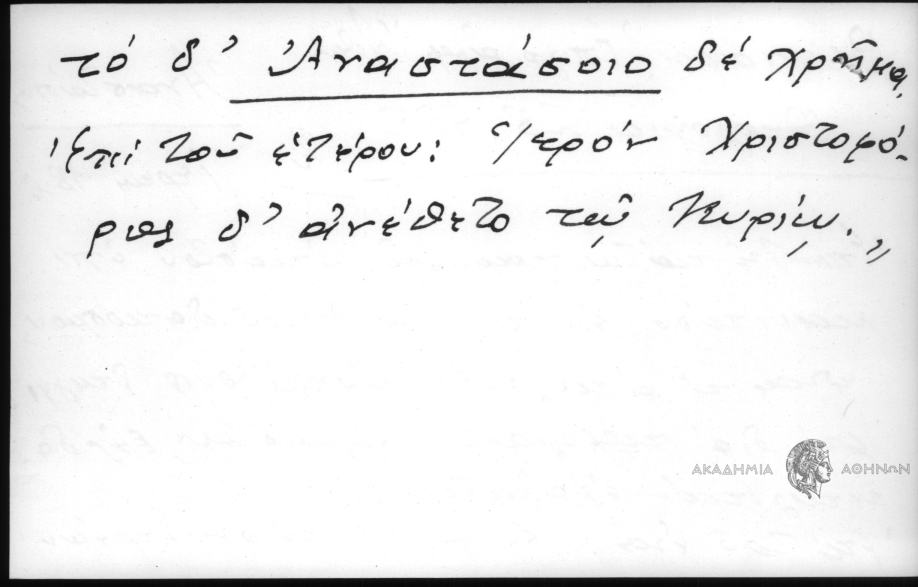 τό δ' Ἀναστάσοιο δέ χρῆμα.
Ἐπί τοῦ ἑτέρου: Ἱερόν Χριστοφό-
ρος δ' ἀνέθετο τῷ Κυρίῳ.„
ΑΚΑΔΗΜΙΑ ΑΘΗΝΩΝ